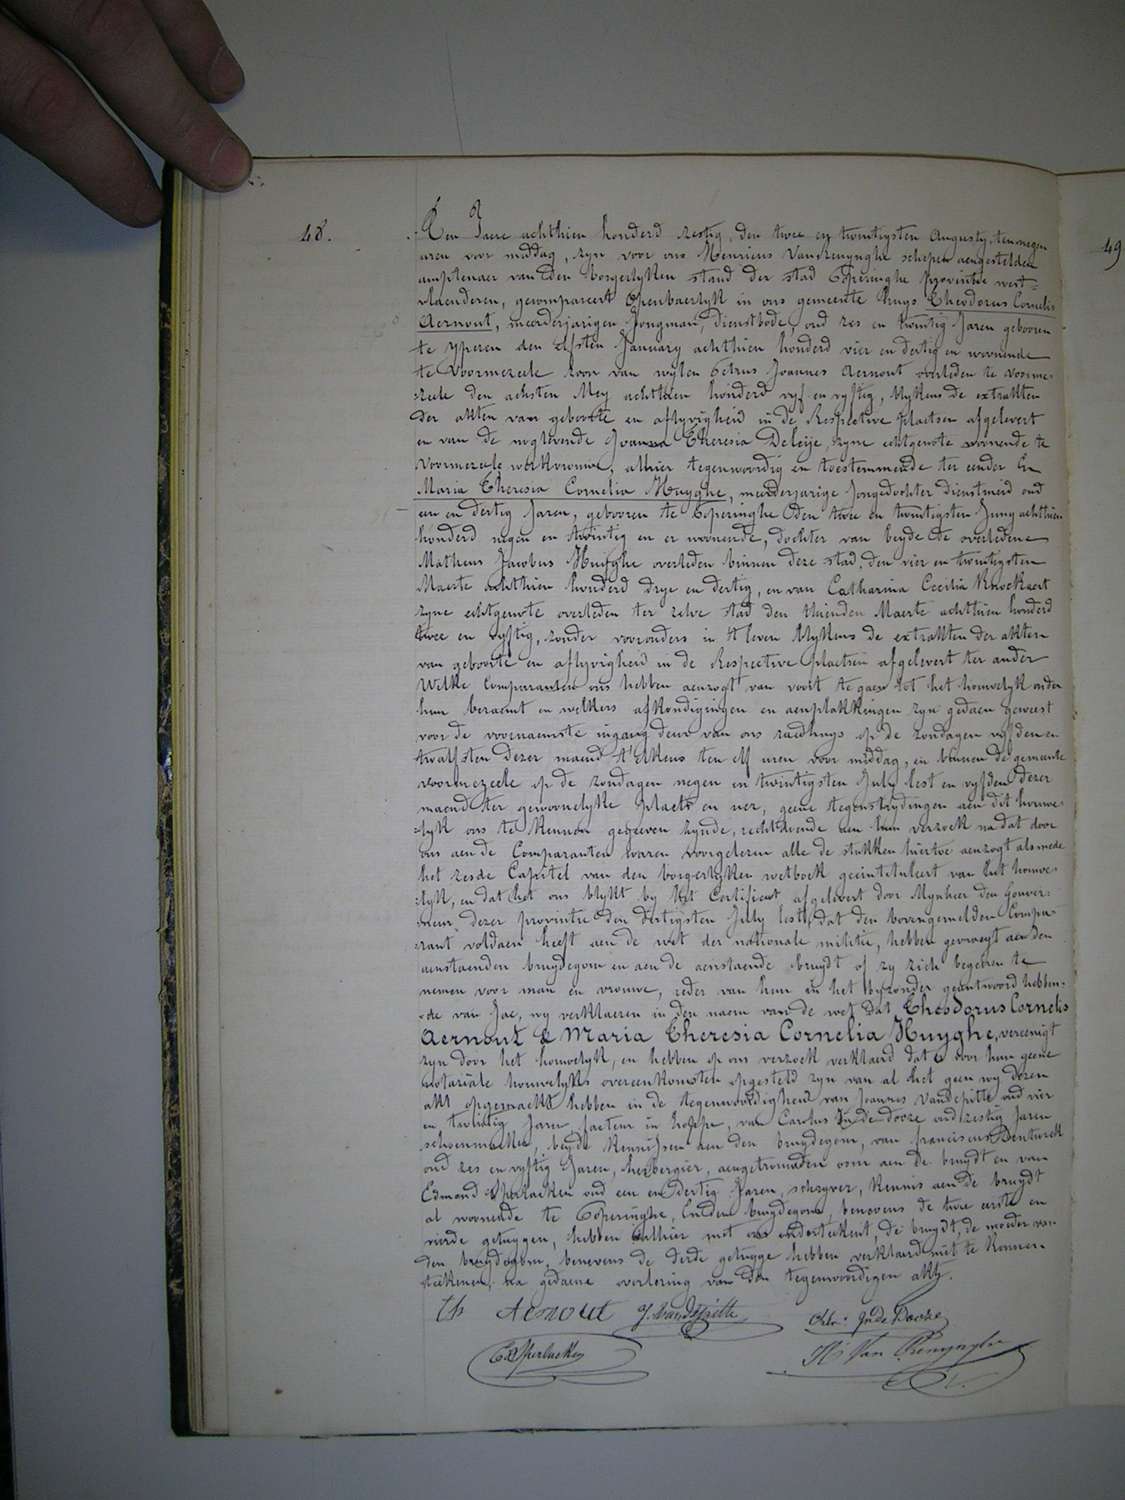 48.
49
Den Jaere achthien honderd zestig, den twee en twintigsten Augusty, ten negen
uren voor middag, zyn voor ons Henricus Vanrenynghe schepen aengestelden
amptenaer van den borgerlyken stand der stad Poperinghe provintie west-
vlaenderen, gecompareert openbaerlyk in ons gemeente huys Theodorus Cornelis
Aernout, meerderjarigen Jongman, dienstbode, oud zes en twintig Jaren gebooren
te Yperen den elfsten January achthien honderd vier en dertig en woonende
te Voormezeele zoon van wylen Petrus Joannes Aernout overleden te voorme-
zeele den achsten Mey achthien honderd vyf en vyftig, blykens de extrakten
der akten van geboorte en aflyvigheid in de Respective plaetsen afgelevert
en van de noglevende Joanna Theresia Deleije zyne echtgenote woonende te
Voormezeele werkvrouw, alhier tegenwoordig en toestemmende ter eender En
Maria Theresia Cornelia Huyghe, meerderjarige Jongedochter dienstmeid oud
een en dertig Jaren, gebooren te Poperinghe den twee en twintigsten Juny achthien
honderd negen en twintig en er woonende, dochter van beyde de overledene
Matheus Jacobus Huyghe overleden binnen deze stad, den vier en twintigsten
Maerte achthien honderd drye en dertig, en van Catharina Cecilia Knockaert
zyne echtgenote overleden ter zelve stad den thienden Maerte achthien honderd
twee en vyftig, zonder voorouders in 't leven blykens de extrakten der akten
van geboorte en aflyvigheid in de Respective plaetsen afgelevert ter ander
Welke Comparanten ons hebben aenzogt van voort te gaen tot het houwelyk onder
hun beraemt en welkers afkondigingen en aenplakkingen zyn gedaen geweest
voor de voornaemste ingang deur van ons raedhuys op de zondagen vyfden en
twalfsten dezer maend t'elkens ten elf uren voor middag, en binnen de gemeente
voormezeele op de zondagen negen en twintigsten July lest en vyfden dezer
maend ter gewoonelyke plaets en uer, geene tegenstrydingen aen dit houwe-
lyk ons te kennen gegeeven zynde, rechtdoende aen hun verzoek na dat door
ons aen de Comparanten waren voorgelezen alle de stukken hiertoe aenzogt alsmede
het zesde Capitel van den borgerlyken wetboek geintituleert van het houwe-
lyk, en dat het ons blykt by het Certificaet afgelevert door Mynheer den Gouver-
neur dezer provintie den dertigsten July lest, dat den bovengemelden Compa-
rant voldaen heeft aen de wet der nationale militie, hebben gevraegt aen den
aenstaenden bruydegom en aen de aenstaende bruydt of zy zich begeeren te
nemen voor man en vrouwe, ieder van hun in het byzonder geantwoord hebben-
de van Jae, wy verklaeren in den naem van de wet dat Theodorus Cornelis
Aernout & Maria Theresia Cornelia Huyghe, vereenigt
zyn door het houwelyk, en hebben op ons verzoek verklaerd dat er door hun geene
notariale houwelyks overeenkomsten opgesteld zyn van al het geen wy dezen
akt opgemaekt hebben in de tegenwoordigheid van Joannes Vandepitte oud vier
en twintig Jaren facteur in hoppe, van Carolus Indedooze oud zestig Jaren
schoenmaeker, beyde kennissen aen den bruydegom, van franciscus Denturck
oud zes en vyftig Jaren, herbergier, aengetrouwden oom aen de bruydt en van
Edmond Sperlaecken oud een en dertig Jaren, schryver, kennis aen de bruydt
al woonende te Poperinghe, Enden bruydegom, benevens de twee eerste en
vierde getuygen, hebben alhier met ons onderteekent, de bruydt, de moeder van
den bruydegom, benevens de derde getuyge hebben verklaerd niet te konnen
teekenen, na gedaene voorlezing van den tegenwoordigen akt.
th Aernout J. Vandepitte Chls Inde Dooze
E Sperlaecken H. Van Renynghe